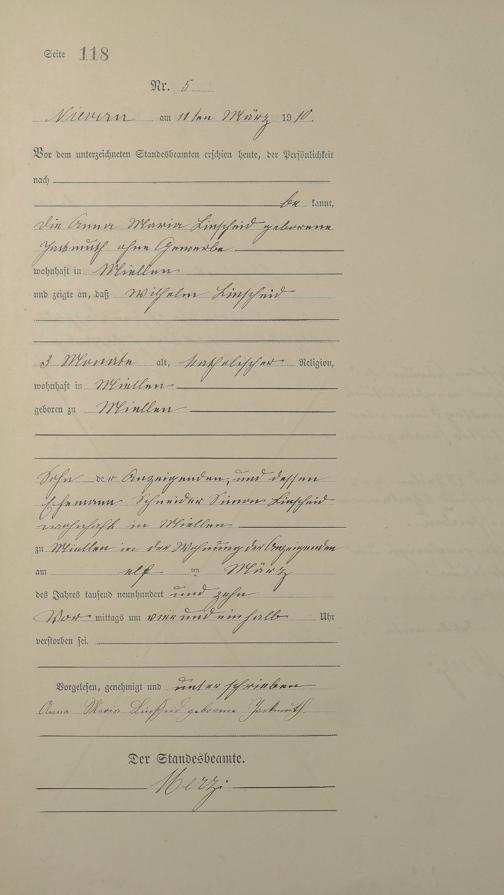 Seite 118
Nr. 5
Nievern am 11ten März 1910.
Vor dem unterzeichneten Standesbeamten erschien heute, der Persönlichkeit
nach
be kannt,
die Anna Maria Linscheid geborene
ohne Gewerbe
wohnhaft in Miellen
und zeigte an, daß Wilhelm Linscheid
3 Monate alt, katholischer Religion,
wohnhaft in Miellen
geboren zu Miellen
Sohn der Anzeigenden, und dessen
Ehemann Schneider Simon Linscheid
wohnhaft in Miellen
zu Miellen in der Wohnung der Anzeigenden
am elf ten März
des Jahres tausend neunhundert und zehn
Vor mittags um vier und ein halb Uhr
verstorben sei.
Vorgelesen, genehmigt und unterschrieben
Anna Maria Linscheid geborene
Der Standesbeamte.
Merz